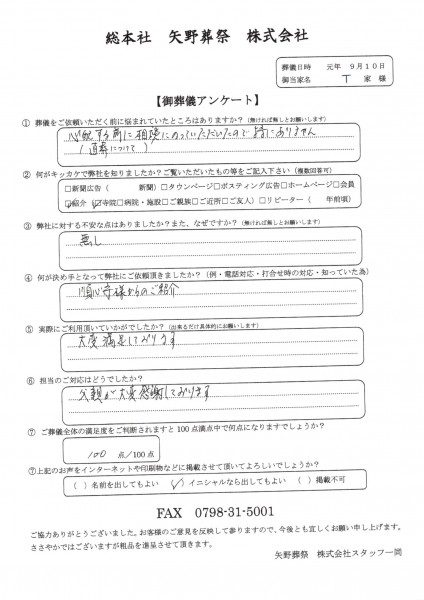 総本社 矢野葬祭 株式会社
葬儀日時 元年 9月10日
御当家名 T 家 様
【御葬儀アンケート】
① 葬儀をご依頼いただく前に悩まれていたところはありますか？（無ければ無しとお願いします）
心配する前に相談にのっていただいたので特にありません
（直葬について）
② 何がキッカケで弊社を知りましたか？ご覧いただいたもの等をご記入下さい（複数回答可）
□新聞広告（ 新聞）□タウンページ□ポスティング広告□ホームページ□会員
☑紹介（☑寺院□病院・施設□ご親族□ご近所□ご友人）□リピーター（ 年前頃）
③ 弊社に対する不安な点はありましたか？また、なぜですか？（無ければ無しとお願いします）
無し
④ 何が決め手となって弊社にご依頼頂きましたか？（例・電話対応・打合せ時の対応・知っていた為）
順心寺様からのご紹介
⑤ 実際にご利用頂いていかがでしたか？（出来るだけ具体的にお願いします）
大変満足しております
⑥ 担当のご対応はどうでしたか？
父親が大変感謝しております
⑦ ご葬儀全体の満足度をご判断されますと100点満点中で何点になりますでしょうか？
100 点/100点
⑦上記のお声をインターネットや印刷物などに掲載させて頂いてよろしいでしょうか？
（ ）名前を出してもよい （✓）イニシャルなら出してもよい （ ）掲載不可
FAX 0798-31-5001
ご協力ありがとうございました。お客様のご意見を反映して参りますので、今後とも宜しくお願い申し上げます。
ささやかではございますが粗品を進呈させて頂きます。
矢野葬祭 株式会社スタッフ一同